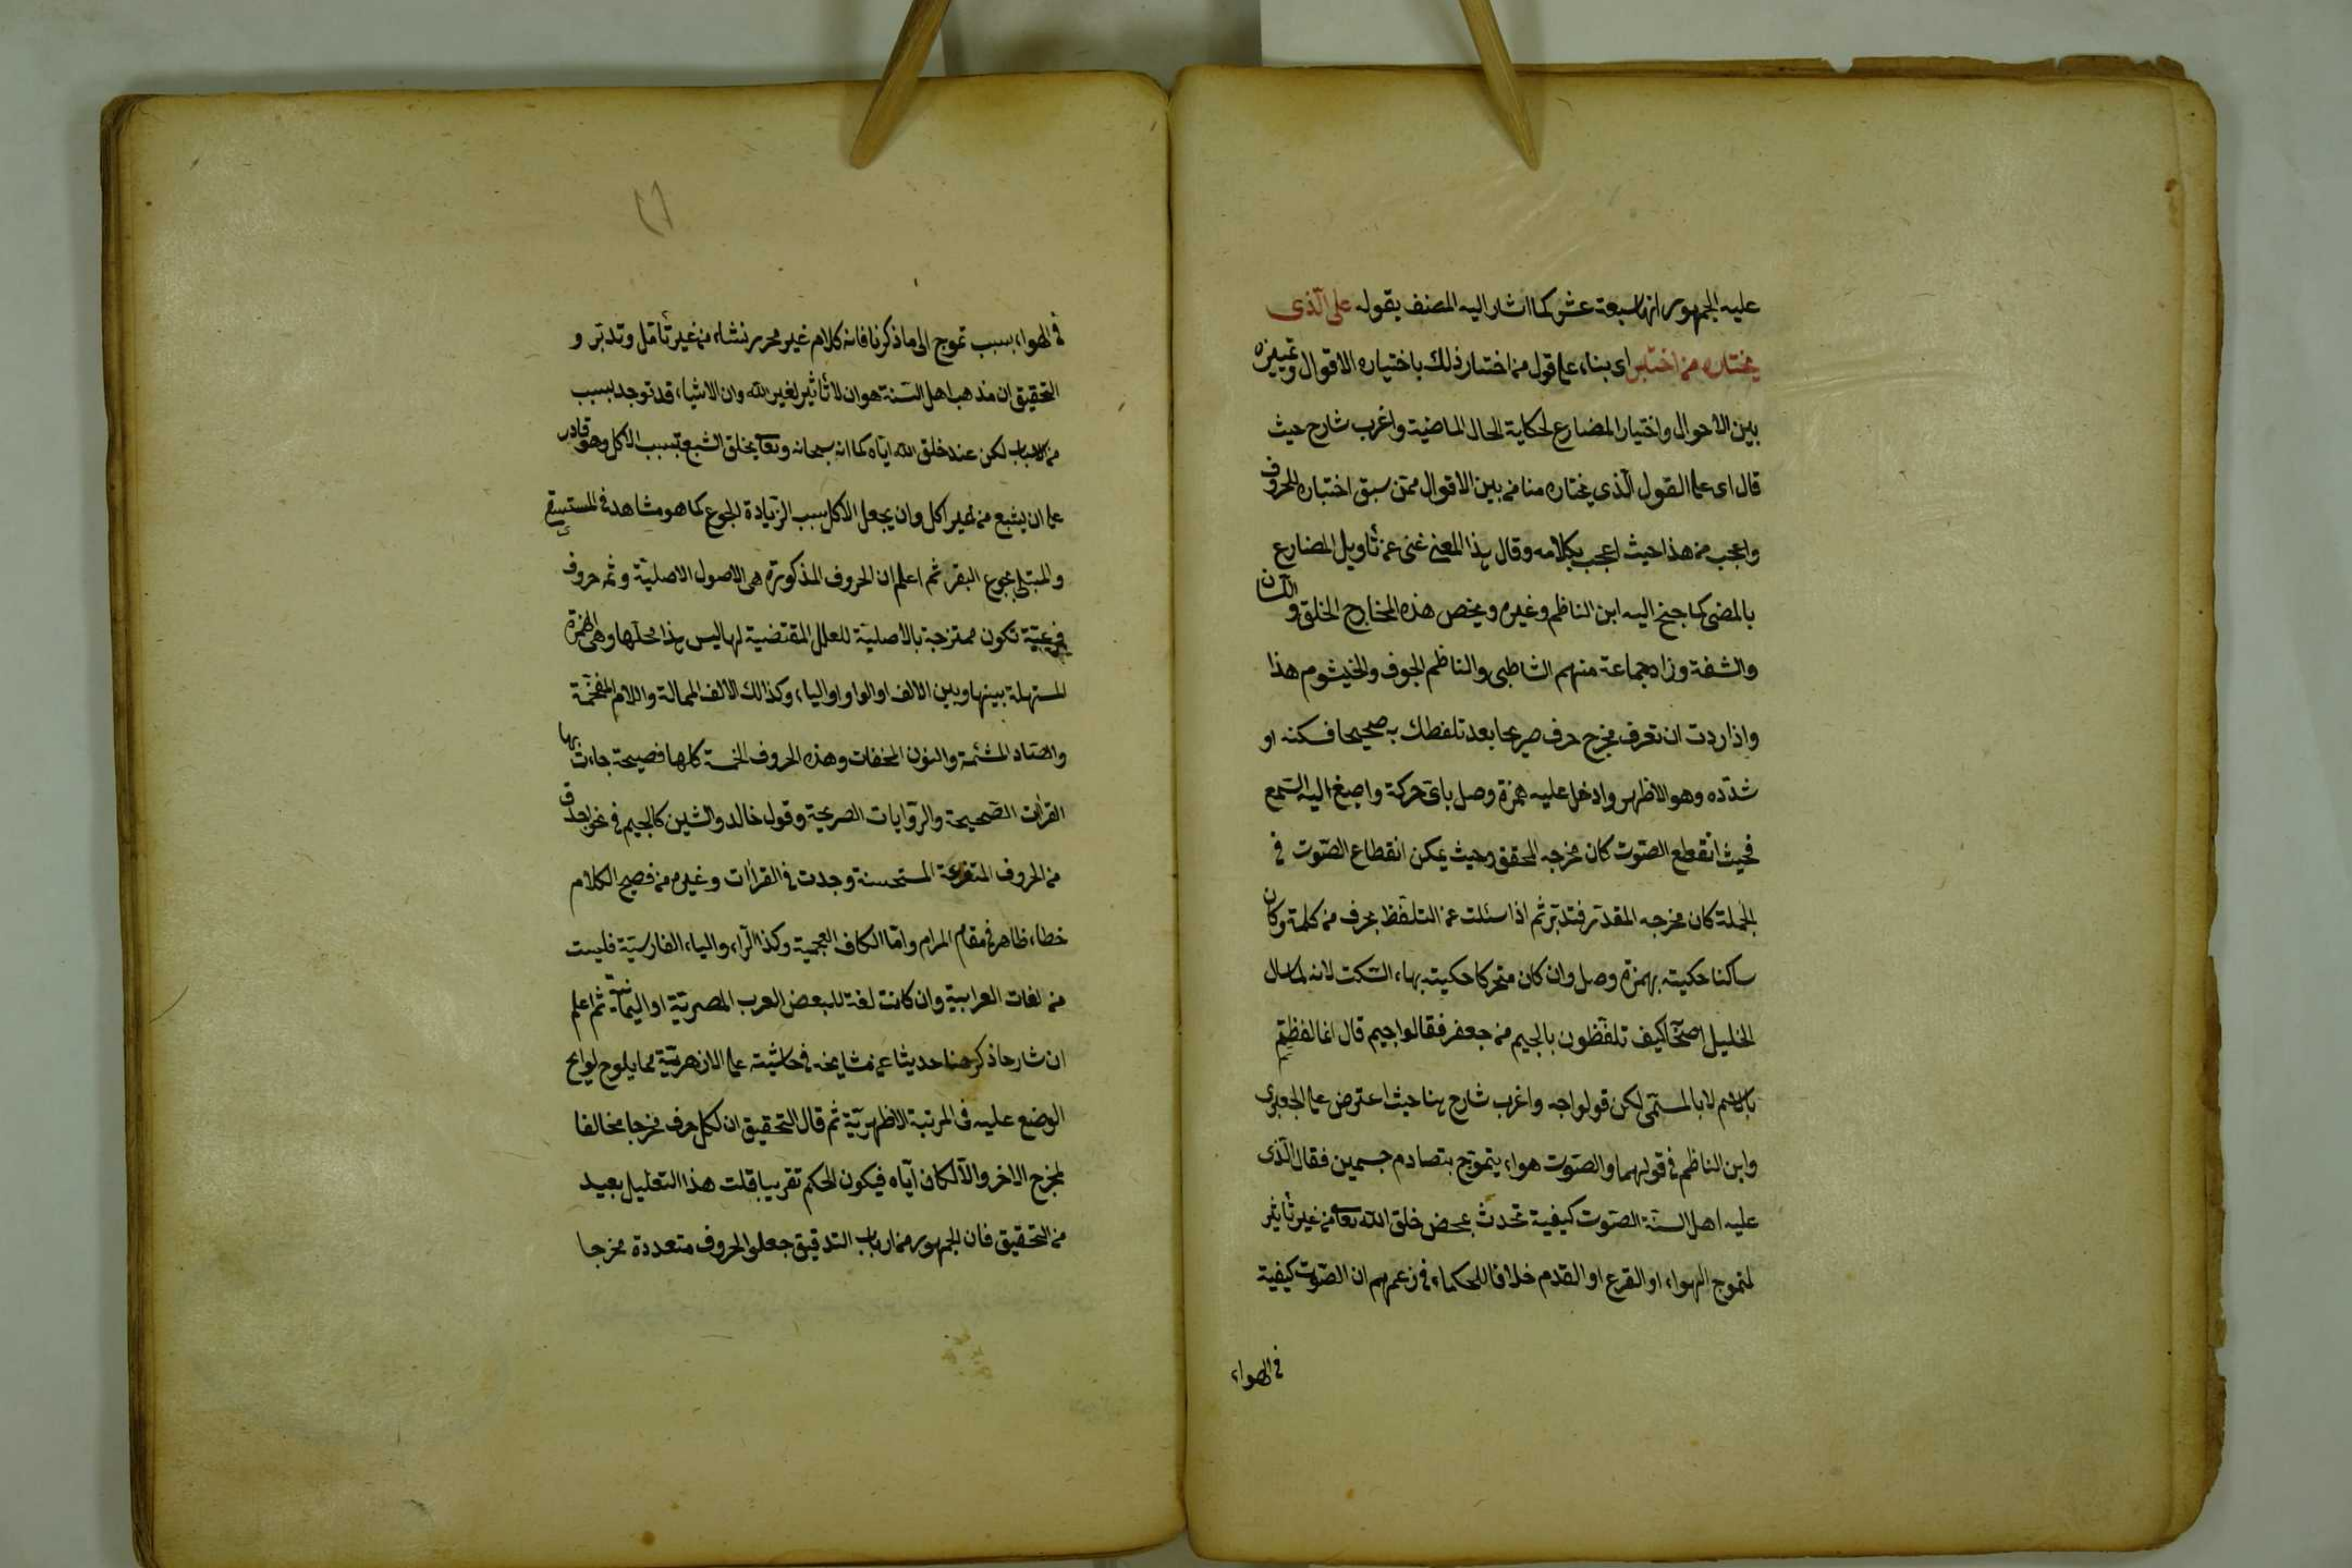 عليه الجمهور انها سبعة عشر كما اشار اليه المصنف بقوله على الّذى
يختاره من اختبر اى بناء على قول من اختار ذلك باختياره الاقوال وتمييزه
بين الاحوال واختيار المضارع لحكاية الحال الماضية واغرب شارح حيث
قال اى على القول الّذى يختاره منا من بين الاقوال ممّن سبق اختباره الحروف
واعجب من هذا حيث اعجب بكلامه وقال بهذا المعنى غنى عن تأويل المضارع
بالمضى كما جنح اليه ابن الناظم وغيره ويخص هذه المخارج الحلق و اللسان
والشفة وزاد جماعة منهم الشاطبى والناظم الجوف والخيشوم هذا
واذا اردت ان تعرف مخرج حرف صريحا بعد تلفظك به صحيحا فسكنه او
شدّده وهو الاظهر وادخل عليه همزة وصل باىّ حركة واصغ اليه السّمع
فحيث انقطع الصّوت كان مخرجه المحقق وحيث يمكن انقطاع الصّوت فى
الجملة كان مخرجه المقدّر فتدبّر ثم اذا سئلت عن التلفّظ بحرف من كلمة وكان
ساكنا حكيته بهمزة وصل وان كان متحركا حكيته بهاء السّكت لانه لما سال
الخليل اصحابه كيف تلفّظون بالجيم من جعفر فقالوا جيم قال انما لفظتم
بالاسم لا بالمسمّى لكن قولوا جه واغرب شارح هنا حيث اعترض على الجعبرى
وابن الناظم فى قولهما والصّوت هواء يتموّج بتصادم جسمين فقال الّذى
عليه اهل السنّة الصّوت كيفية تحدث بمحض خلق الله تعالى من غير تأثير
لتموج الهواء او القرع او القدم خلافا للحكماء فى زعمهم ان الصّوت كيفية
فى الهواء
فى الهواء بسبب تموج الى ما ذكرنا فانه كلام غير محرر نشاء من غير تأمّل وتدبّر و
التحقيق ان مذهب اهل السّنة هو ان لا تأثير لغير الله وان الاشياء قد توجد بسبب
من الاسباب لكن عند خلق الله ايّاه كما انه سبحانه وتعالى يخلق الشبع بسبب الاكل وهو قادر
على ان يشبع من غير اكل وان يجعل الاكل سبب الزّيادة الجوع كما هو مشاهد فى المستسقى
والمبتلى بجوع البقر ثم اعلم ان الحروف المذكورة هى الاصول الاصليّة وثمه حروف
فرعيّة تكون ممتزجة بالاصليّة للعلل المقتضية لها ليس هذا محلّها وهى الهمزة
المستهلة بينها وبين الالف او الواو او الياء وكذالك الالف الممالة واللام المفخّمة
والصّاد المشمّة والنون المخفات وهذه الحروف الخمسة كلها فصيحة جاءت بها
القراءت الصّحيحة والرّوايات الصريحة وقول خالد والشين كالجيم فى نحو اجدق
من الحروف المتفرعة المستحسنة وجدت فى القراءات وغيره من فصيح الكلام
خطاء ظاهر فى مقام المرام وامّا الكاف العجمية وكذا الرّاء والياء الفارسيّة فليست
من لغات العرابية وان كانت لغة للبعض العرب المصريّة او اليمانية ثم اعلم
ان شارحا ذكر هنا حديثا عن مشايخه فى حاشيته على الازهريّة مما يلوح لوايح
الوضع عليه فى المرتبة الاظهريّة ثم قال التحقيق ان لكل حرف مخرجا مخالفا
لمخرج الاخر والّا لكان ايّاه فيكون الحكم تقريبا قلت هذا التعليل بعيد
من التحقيق فان الجمهور من ارباب التدقيق جعلوا لحروف متعددة مخرجا